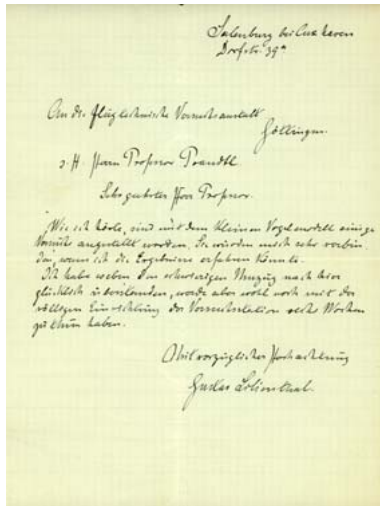 Salenburg bei Cuxhaven
Dorfstr. 39a
An die flugtechnische Versuchsanstalt
Göttingen.
z. H. Herrn Professor Prandtl.
Sehr geehrter Herr Professor.
Wie ich hörte, sind mit dem kleinen Vogelmodell einige
Versuche angestellt worden. Sie würden mich sehr verbin-
den, wenn ich die Ergebnisse erfahren könnte.
Ich habe soeben den schwierigen Umzug nach hier
glücklich überstanden, werde aber wohl noch mit der
völligen Einrichtung der Versuchsstation sechs Wochen
zu thun haben.
Mit vorzüglicher Hochachtung
Gustav Lilienthal.